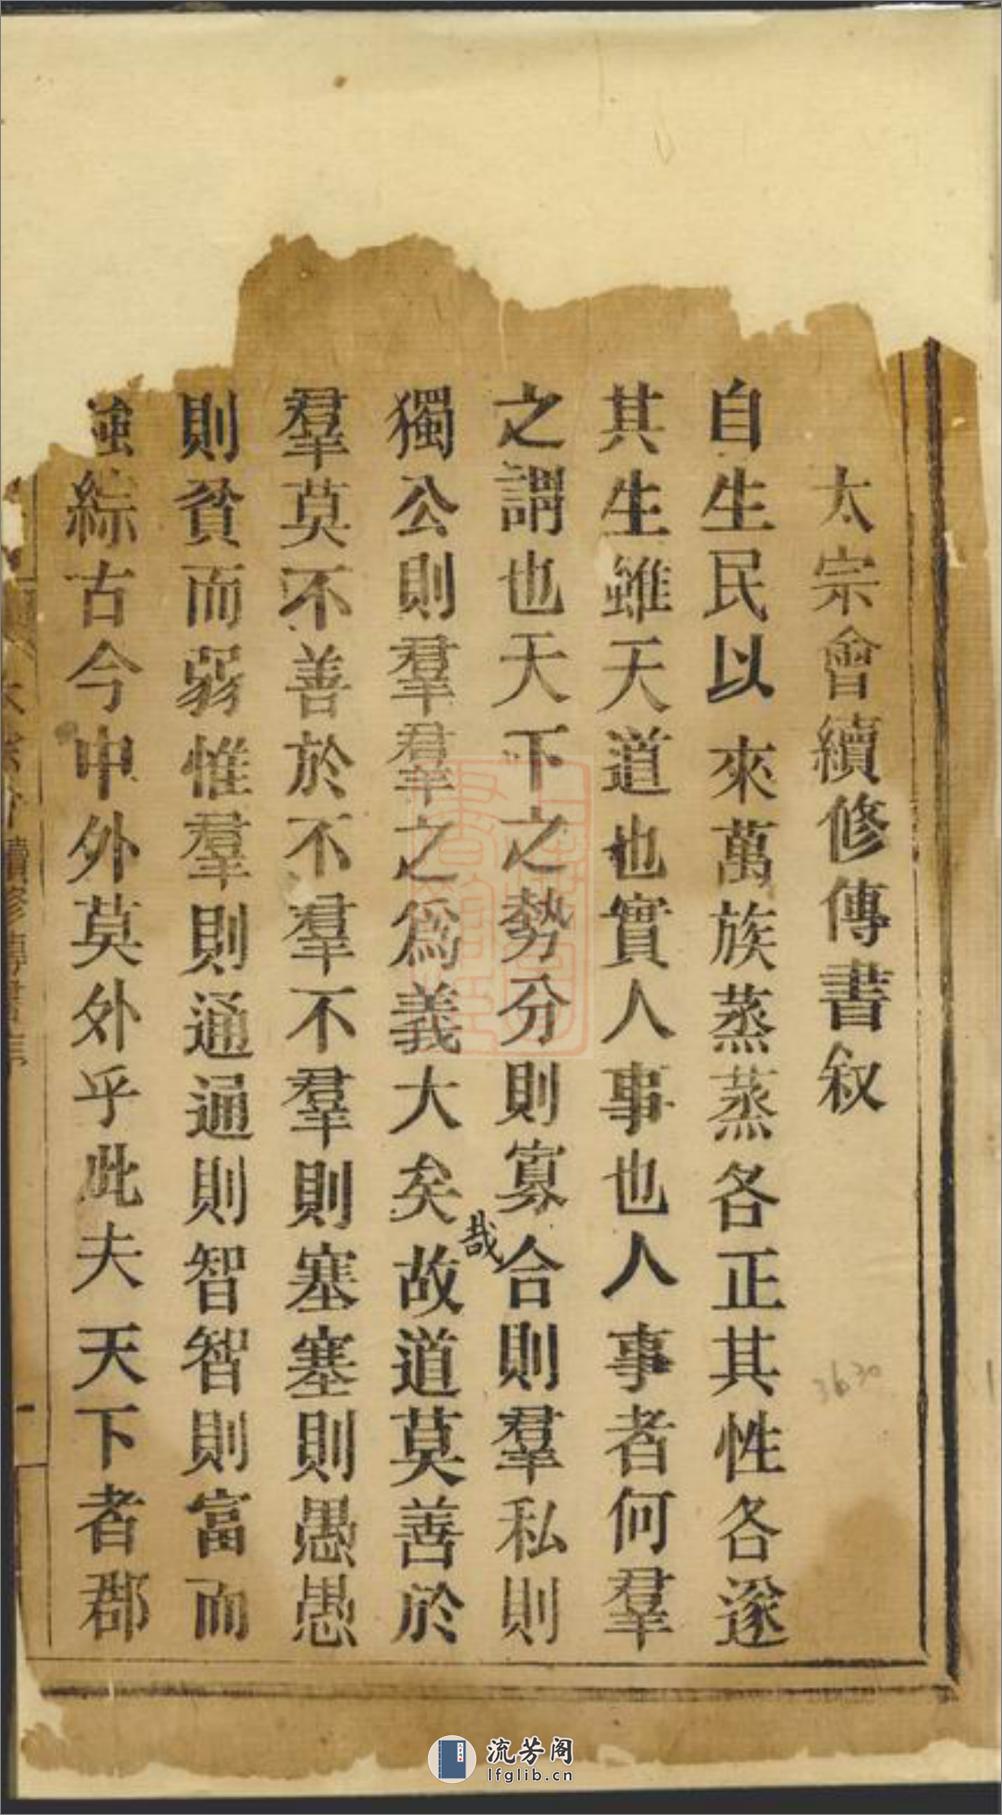 太宗會續修傳書叙
自生民以來萬族蒸蒸各正其性各遂
其生雖天道也實人事也人事者何羣
之謂也天下之勢分則寡合則羣私則
哉
獨公則羣羣之爲義大矣故道莫善於
羣莫不善於不羣不羣則塞塞則愚愚
則貧而弱惟羣則通通則智智則富而
强綜古今中外莫外乎此夫天下者郡
續修傳書
3630
流芳阁
lfglib.cn